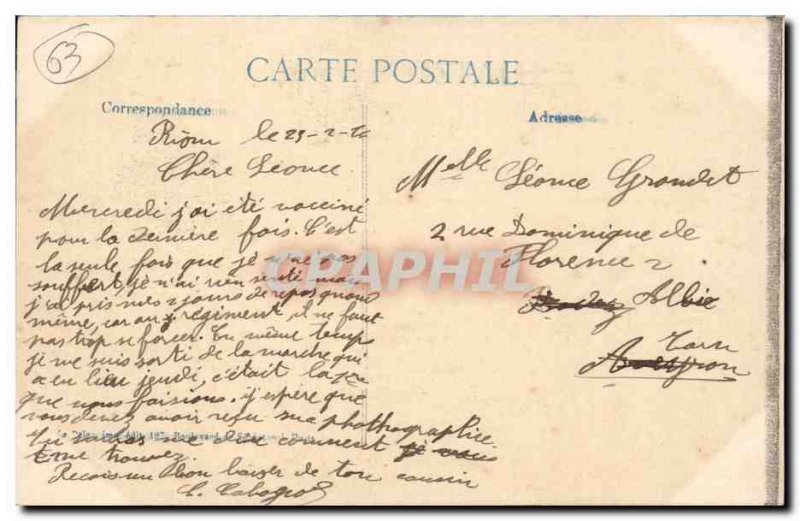 63
CARTE POSTALE
Correspondance
Adresse
Riom le 25-2-
Chère Léonce
Mercredi j'ai été vacciné
pour la dernière fois. C'est
la seule fois que je n'ai pas
souffert, je n'ai rien senti mais
j'ai pris mes 2 jours de repos quand
même, car au régiment, il ne faut
pas trop se forcer. En même temps
je me suis sorti de la marche qui
a eu lieu jeudi, c'était la 1re
que nous faisions. J'espère que
vous devez avoir reçu ma phothographie.
Tu me diras comment
me trouvez
Recois un bon baiser de ton cousin
Melle Léonce Grandet
2 rue Dominique de
Florence 2.
Rodez Albi
Tarn
Aveyron
CRAPHIL